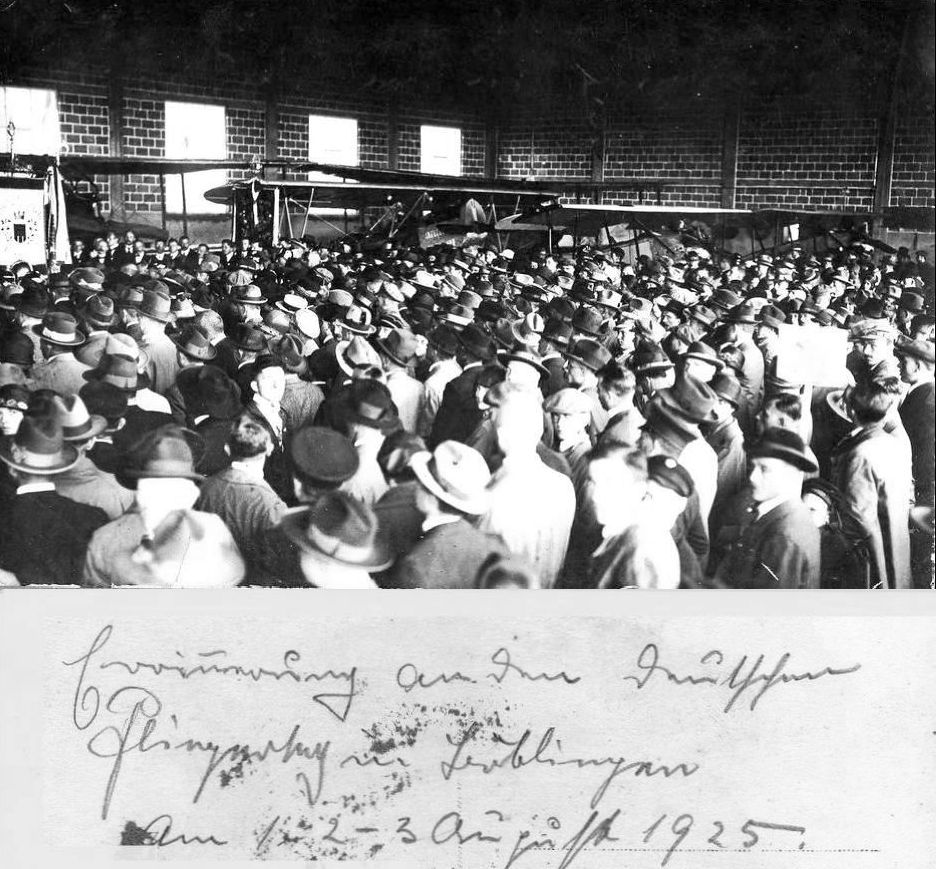 Erinnerung an den deutschen
Fliegertag in Böblingen
am 1. 2 - 3 August 1925.